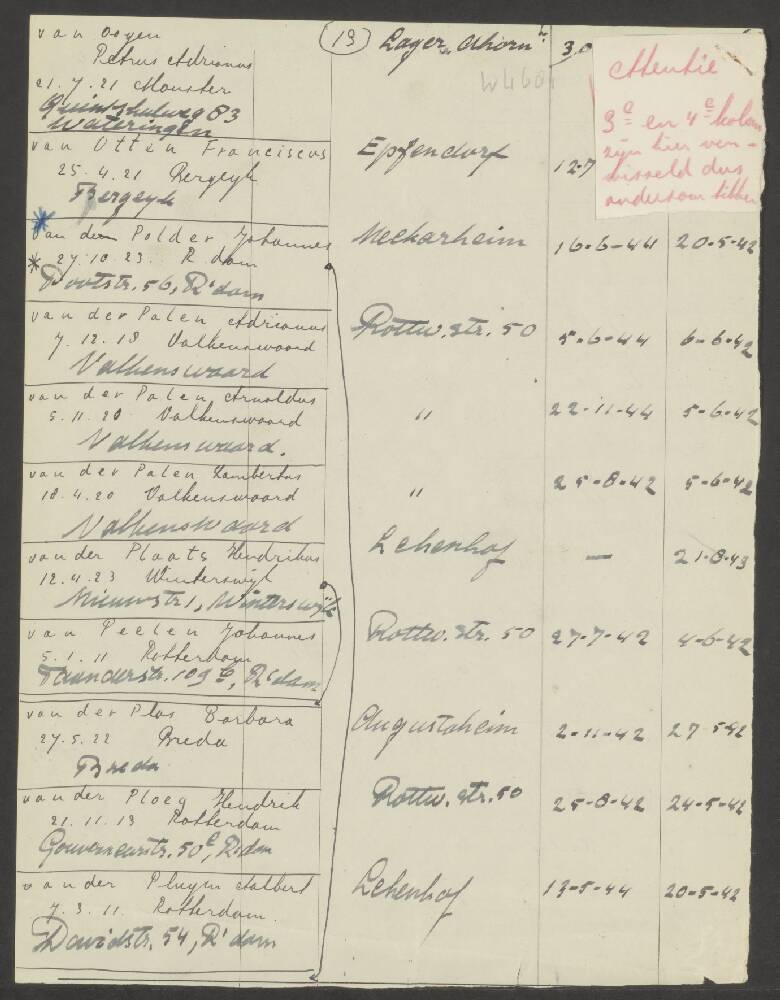 van Oogen
Petrus Adrianus
21.7.21 Monster
Quintsheulweg 83
Wateringen
(13) Lager Ahorn 30
Attentie
3e en 4e kolom
zijn hier ver-
wisseld dus
andersom tikken
van Otten Franciscus
25.4.21 Bergeyk
Bergeyk
Epfendorf 12-7
van den Polder Johannes
* 27.10.23 R'dam
Pootstr. 56, R'dam
Neckarheim 16-6-44 20-5-42
van der Palen Adrianus
7.12.18 Valkenswaard
Valkenswaard
Rottw. str. 50 5-6-44 6-6-42
van der Palen Arnoldus
5.11.20 Valkenswaard
Valkenswaard.
" 22-11-44 5-6-42
van der Palen Lambertus
18.4.20 Valkenswaard
Valkenswaard
" 25-8-42 5-6-42
van der Plaats Hendrikus
12.4.23 Winterswijk
Nieuwstr 1, Winterswijk
Lehenhof — 21-8-43
van Peelen Johannes
5.1.11 Rotterdam
109 b, R'dam
Rottw. str. 50 27-7-42 4-6-42
van der Plas Barbara
27.5.22 Breda
Breda
Augustaheim 2-11-42 27-5-42
van der Ploeg Hendrik
21.11.13 Rotterdam
Gouverneurstr. 50c, R'dam
Rottw. str. 50 25-8-42 24-5-42
van der Pluym Aalbert
7.3.11 Rotterdam.
Davidstr. 54, R'dam
Lehenhof 13-5-44 20-5-42